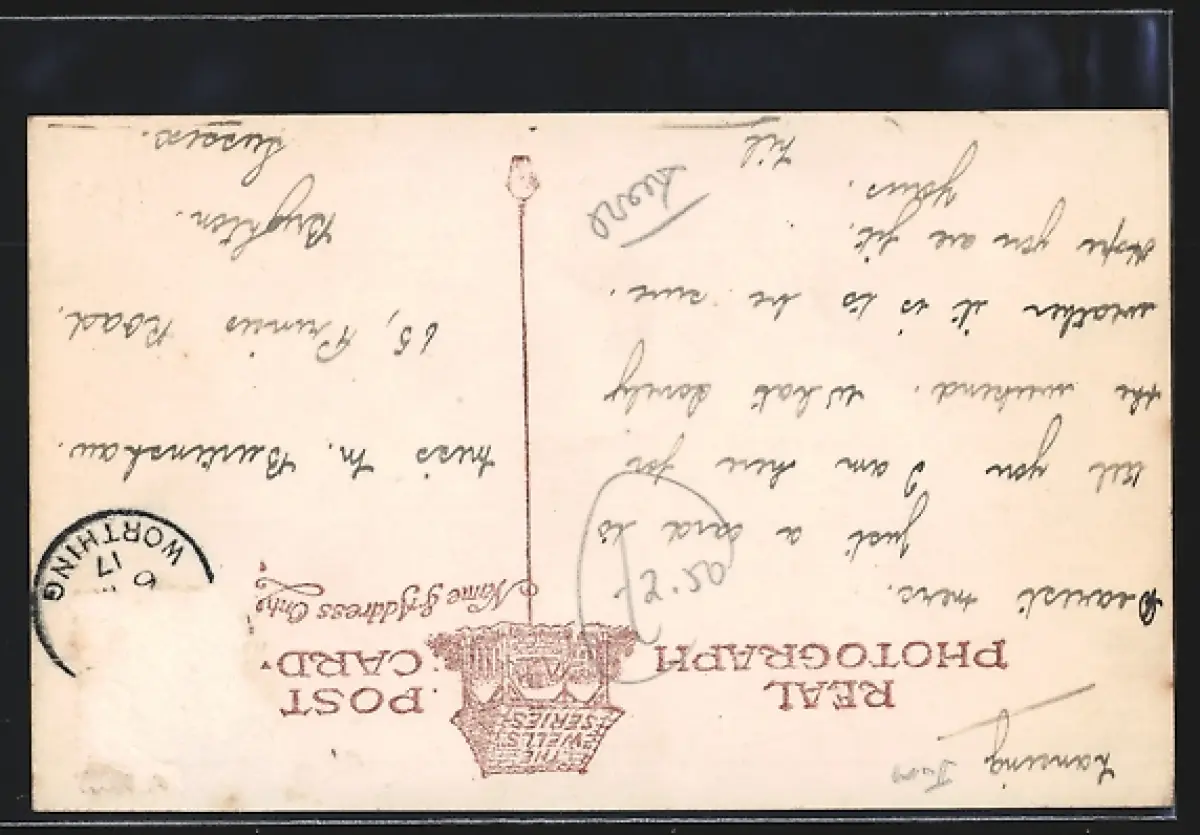 Lansing
REAL
PHOTOGRAPH
THE
WELLS
SERIES
POST
CARD
Name & Address Only
WORTHING
17
6
£2.50
Dearest
Just a card to
tell you I am here for
the weekend. What lovely
weather it is to be sure.
Hope you are fit.
Yours.
Miss M. Burtenshaw.
65, Princes Road,
Brighton.
Sussex.